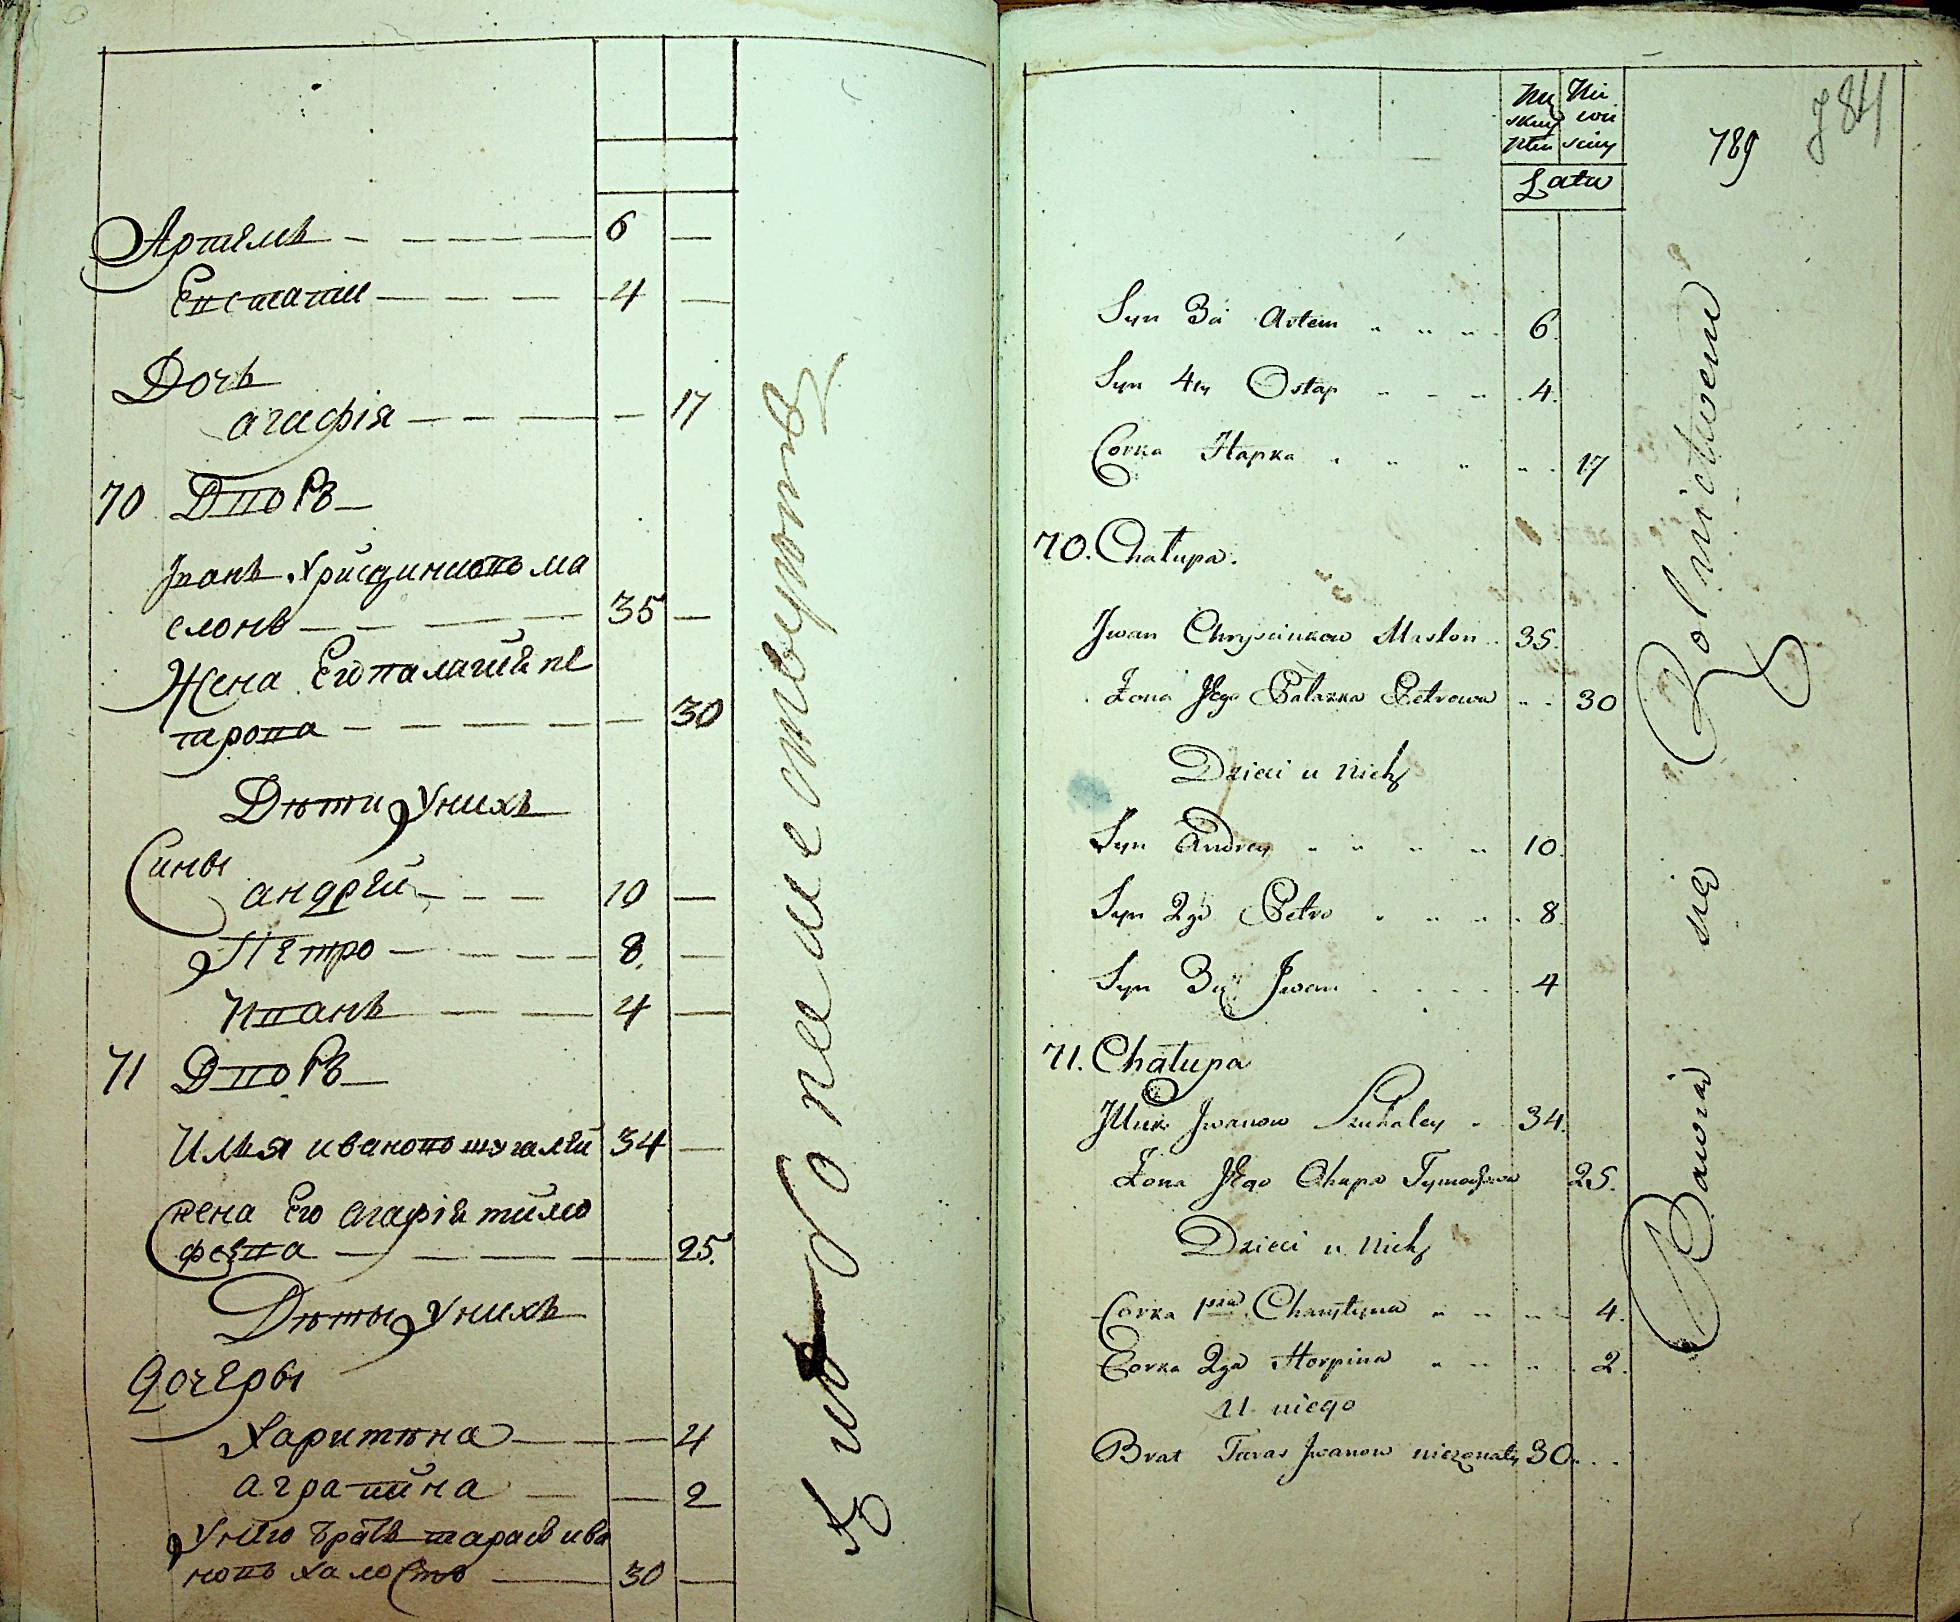 Артемъ 6 —
Евстатие 4 —
Дочь
агафія — 17
70 Дворъ
Іванъ Хрисциниовъ ма
слонъ 35 —
Жена Его палагия пе
трова — 30
Дѣти унихъ
Сины
андрей 10 —
Петро 8. —
Иванъ 4 —
71 Дворъ
Илья ивановъ шугалей 34 —
жена Его агафія тимо
феева — 25.
Дѣты унихъ
дочеры
Харитѣна — 4
аграпина — 2
унего братъ тарасъ ива
новъ халостъ 30 —
789
784
Mę
skiey
płci
Nie
wie
sciey
Lata
Syn 3ci Artem 6.
Syn 4ty Ostap 4.
Corka Hapka 17
70. Chałupa.
Jwan Chrysciukow Maslon 35.
Żona Jego Pałazka Petrowa 30
Dzieci u nich
Syn Andrey 10.
Syn 2gi Petro 8
Syn 3ci Jwan 4
71. Chałupa
Jllia Jwanow Szuhaley 34.
Żona Jego Ohapa Tymofiowa 25.
Dzieci u nich
Corka 1sza Charytyna 4.
Corka 2ga Horpina 2.
U niego
Brat Taras Jwanow nieżonaty 30.
Bawią się Rolnictwem